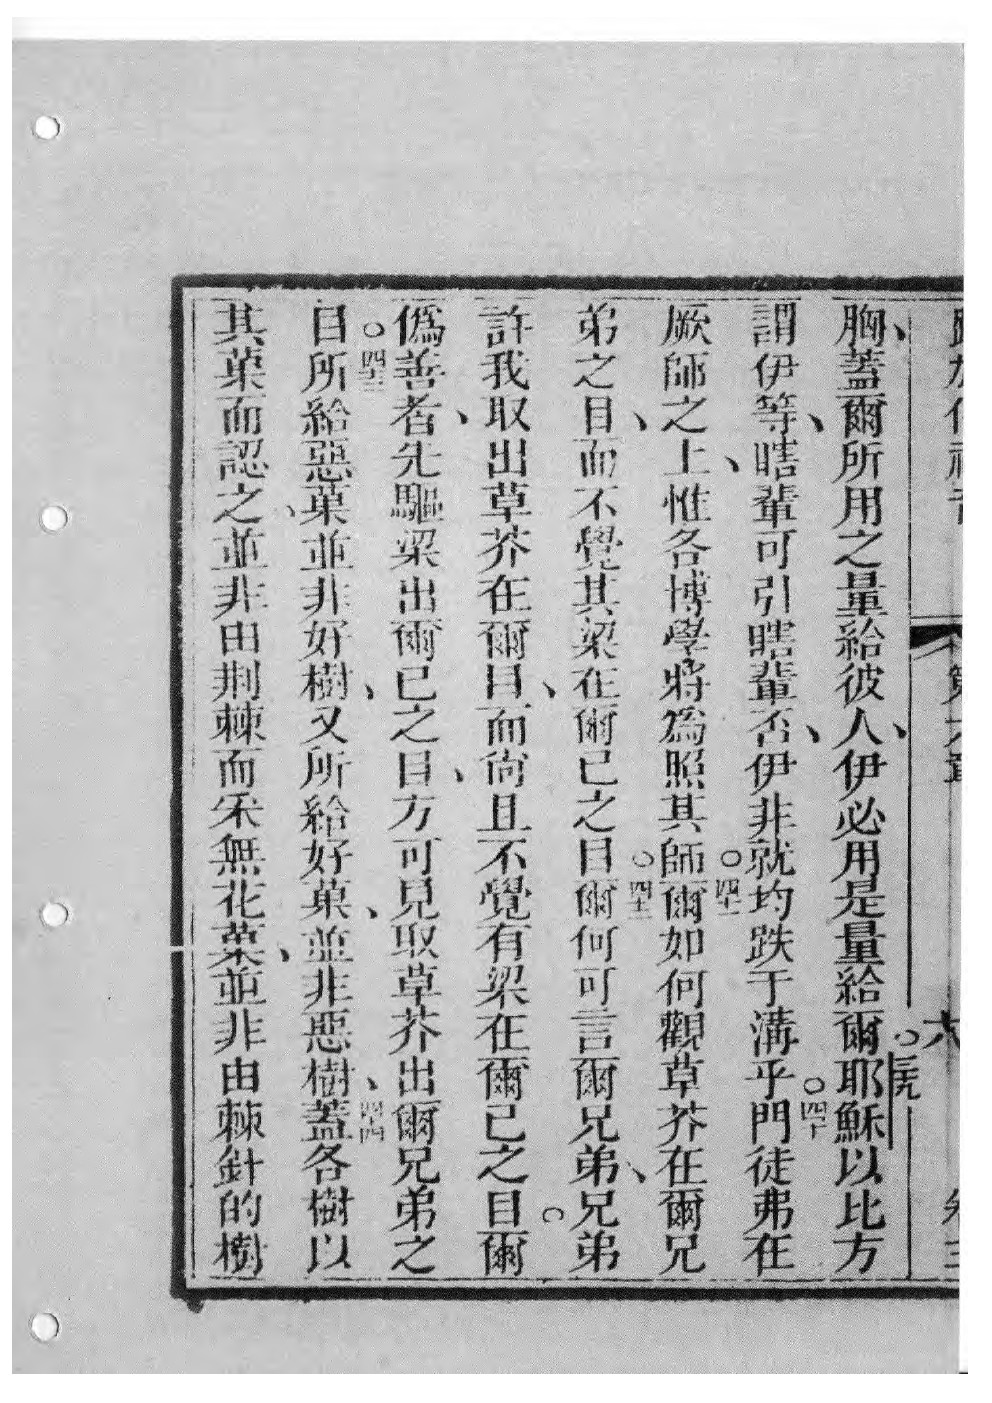 路加傳福音 第六章 六 卷三
胸、蓋爾所用之量給彼人、伊必用是量給爾。三九耶穌以比方
謂伊等、瞎輩可引瞎輩否、伊非就均跌于溝乎。四十門徒弗在
厥師之上、惟各博學將為照其師。四一爾如何觀草芥在爾兄
弟之目、而不覺其梁在爾己之目。四二爾何可言爾兄弟、兄弟
許我取出草芥在爾目、而尚且不覺有梁在爾己之目。爾
偽善者、先驅梁出爾己之目、方可見取草芥出爾兄弟之
目。四三所給惡菓、並非好樹、又所給好菓、並非惡樹、四四蓋各樹以
其菓而認之、並非由荆棘而采無花菓、並非由棘針的樹